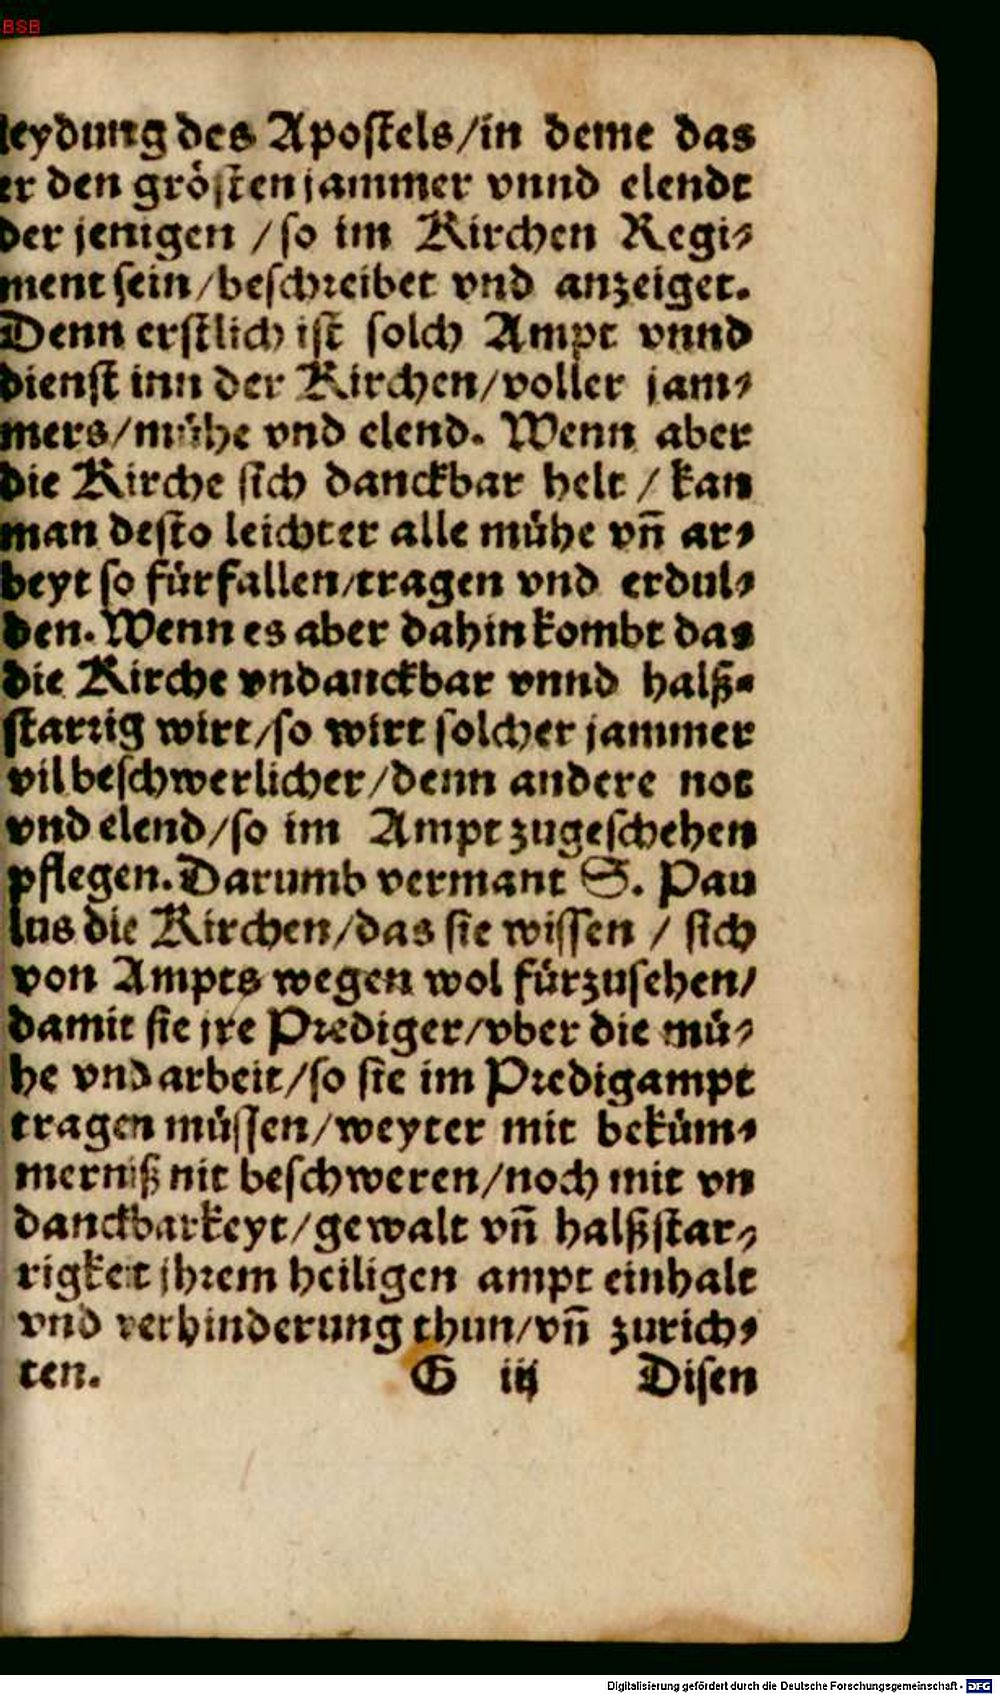 BSB
leydung des Apostels/in deme das
er den grösten jammer vnnd elendt
der jenigen /so im Kirchen Regi⸗
ment sein/beschreibet vnd anzeiget.
Denn erstlich ist solch Ampt vnnd
dienst inn der Kirchen/voller jam⸗
mers/mühe vnd elend. Wenn aber
die Kirche sich danckbar helt / kan
man desto leichter alle mühe vñ ar⸗
beyt so fürfallen/tragen vnd erdul⸗
den. Wenn es aber dahin kombt das
die Kirche vndanckbar vnnd halß⸗
starrig wirt/so wirt solcher jammer
vil beschwerlicher/denn andere not
vnd elend/so im Ampt zugeschehen
pflegen. Darumb vermant S. Pau
lus die Kirchen/das sie wissen / sich
von Ampts wegen wol fürzusehen/
damit sie jre Prediger/vber die mü⸗
he vnd arbeit/so sie im Predigampt
tragen müssen/weyter mit beküm⸗
merniß nit beschweren/noch mit vn
danckbarkeyt/gewalt vñ halßstar⸗
rigkeit jhrem heiligen ampt einhalt
vnd verhinderung thun/vñ zurich⸗
ten. G iij Disen
Digitalisierung gefördert durch die Deutsche Forschungsgemeinschaft - DFG